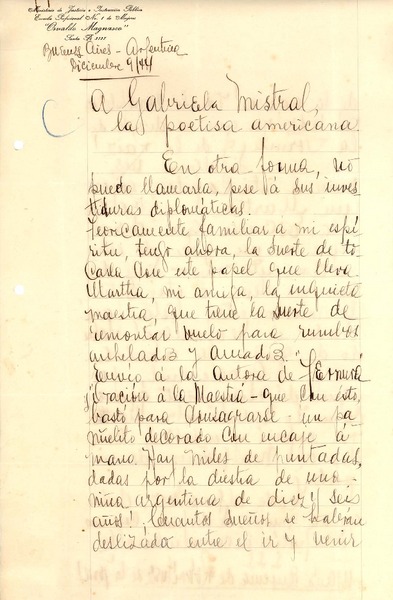 Ministerio de Justicia e Instrucción Pública
Escuela Profesional No. 5 de Mujeres
"Osvaldo Magnasco"
Santa Fe
Buenos Aires - Argentina
Diciembre 9/44
A Gabriela Mistral,
la poetisa americana.
En otra forma, no
puedo llamarla, pese á sus inves
tiduras diplomáticas.
Teóricamente familiar a mi espí
ritu, tengo ahora, la suerte de to
carla con este papel que lleva
Martha, mi amiga, la inquieta
maestra, que tiene la suerte de
remontar vuelo para rumbos
anhelados y amados.
Envío á la autora de
"Oración á la Maestra" - que con esto
bastó para consagrarse - un pa
ñuelito decorado con encaje á
mano. Hay miles de puntadas,
dadas por la diestra de una
niña argentina de diez y seis
años! Cuantos sueños se habrán
deslizado entre el ir y venir